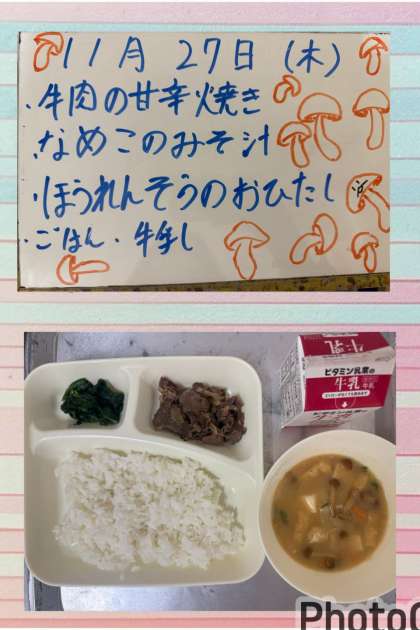 11月 27日 (木)
・牛肉の甘辛焼き
・なめこのみそ汁
・ほうれんそうのおひたし
・ごはん ・牛乳
牛乳
ビタミン乳業の
牛乳
PhotoG